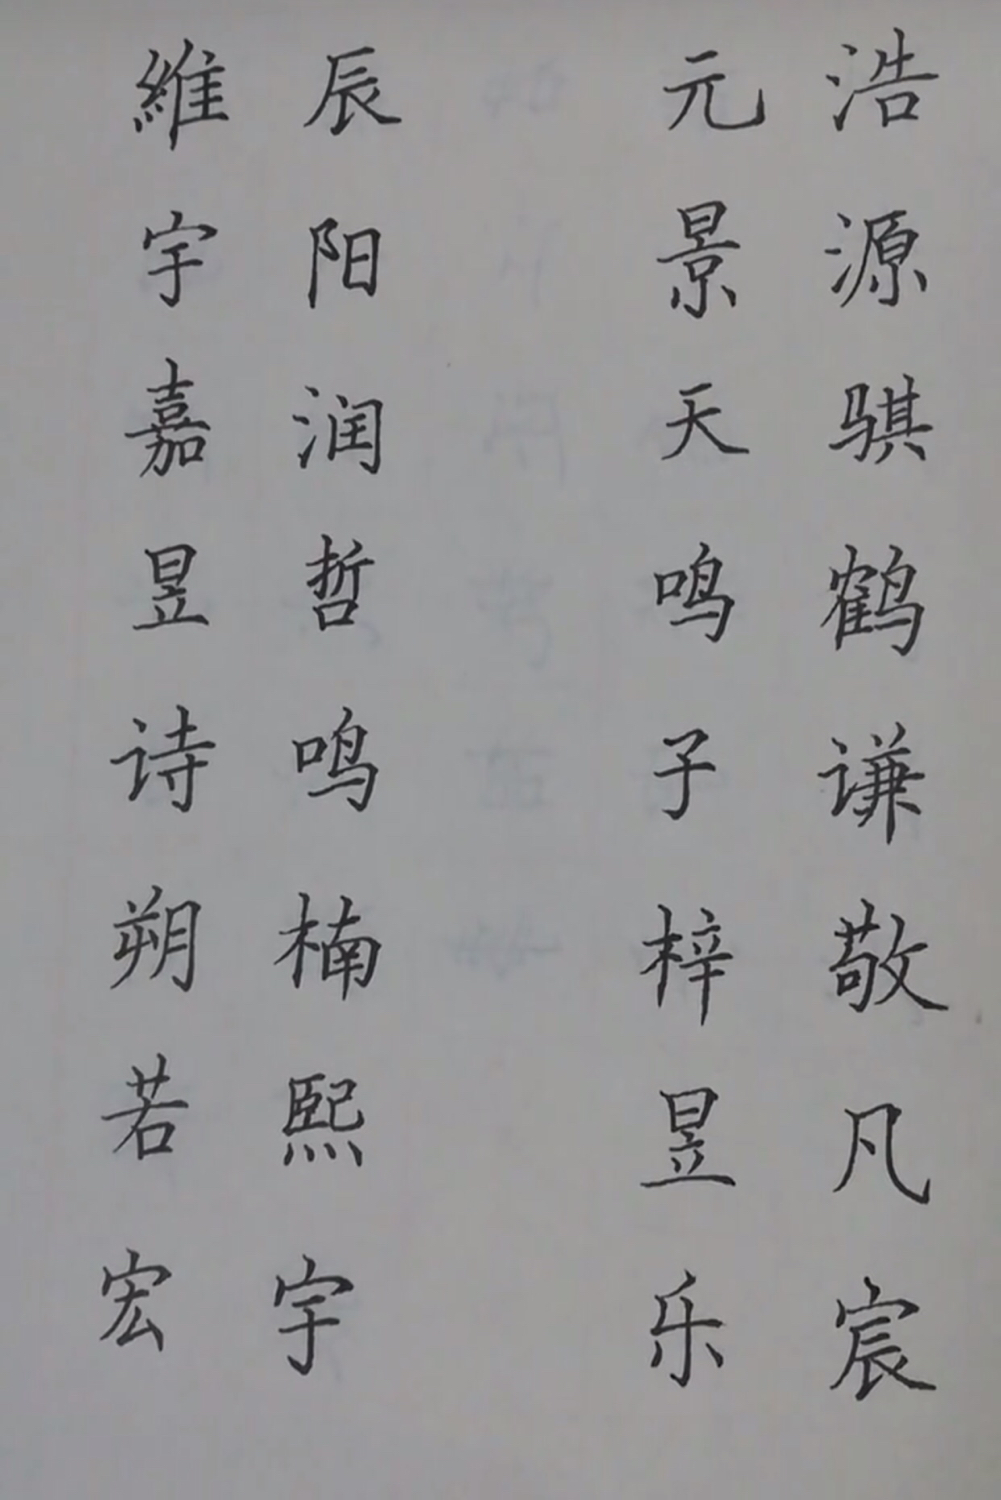 浩源骐鹤谦敬凡宸
元景天鸣子梓昱乐
辰阳润哲鸣楠熙宇
維宇嘉昱诗朔若宏